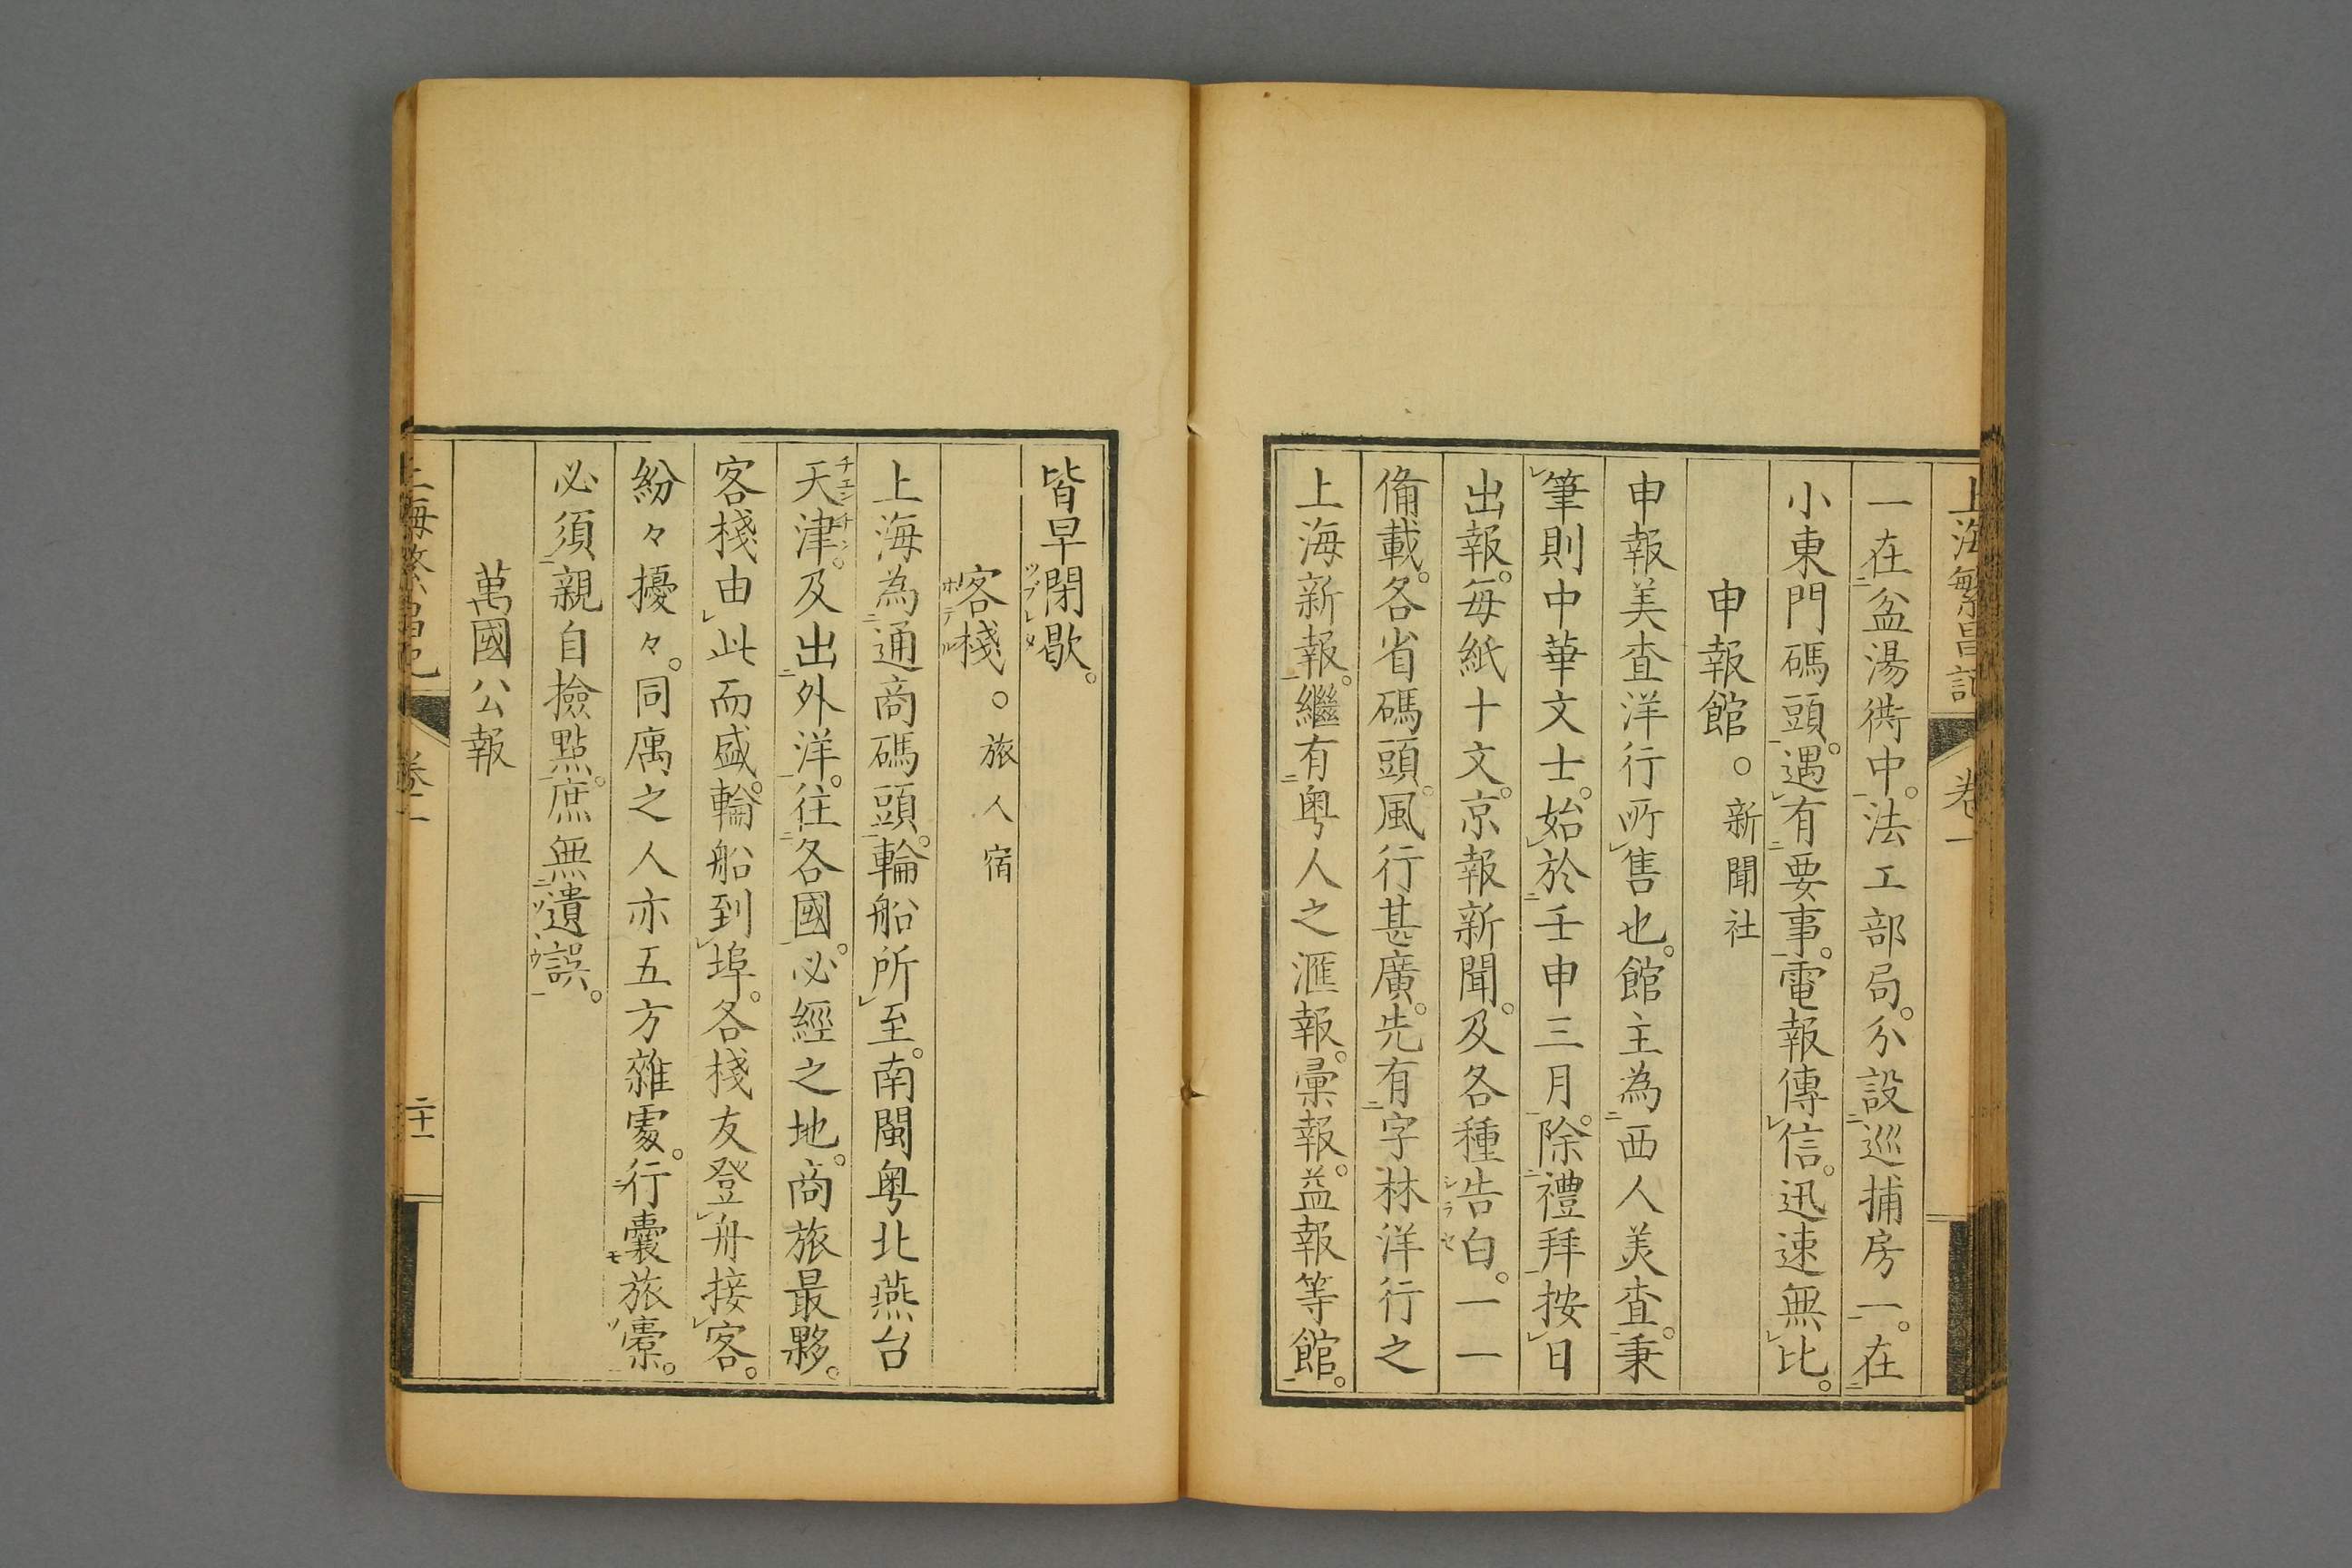 上海繁昌記 卷一
一在盆湯衖中。法工部局。分設巡捕房一。在
小東門碼頭。遇有要事。電報傳信。迅速無比。
申報館。新聞社
申報美查洋行所售也。館主為西人美查。秉
筆則中華文士。始於壬申三月。除禮拜按日
出報。每紙十文。京報新聞。及各種告白。一一
備載。各省碼頭。風行甚廣。先有字林洋行之
上海新報。繼有粤人之滙報。彙報。益報等館。
皆早閉歇。
客棧。旅人宿
上海為通商碼頭。輪船所至。南閩粤北燕台
天津。及出外洋。往各國。必經之地。商旅最夥。
客棧由此而盛。輪船到埠。各棧友登舟接客。
紛々擾々。同寓之人亦五方雜處。行囊旅橐。
必須親自撿點。庶無遺誤。
萬國公報
上海繁昌記 二十一